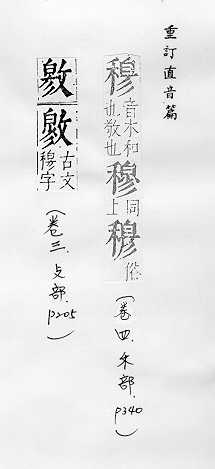 重訂直音篇
穆音木和也敬也穆同上穆俗(卷四.禾部.p340)
古文穆字(卷三.攴部.p205)